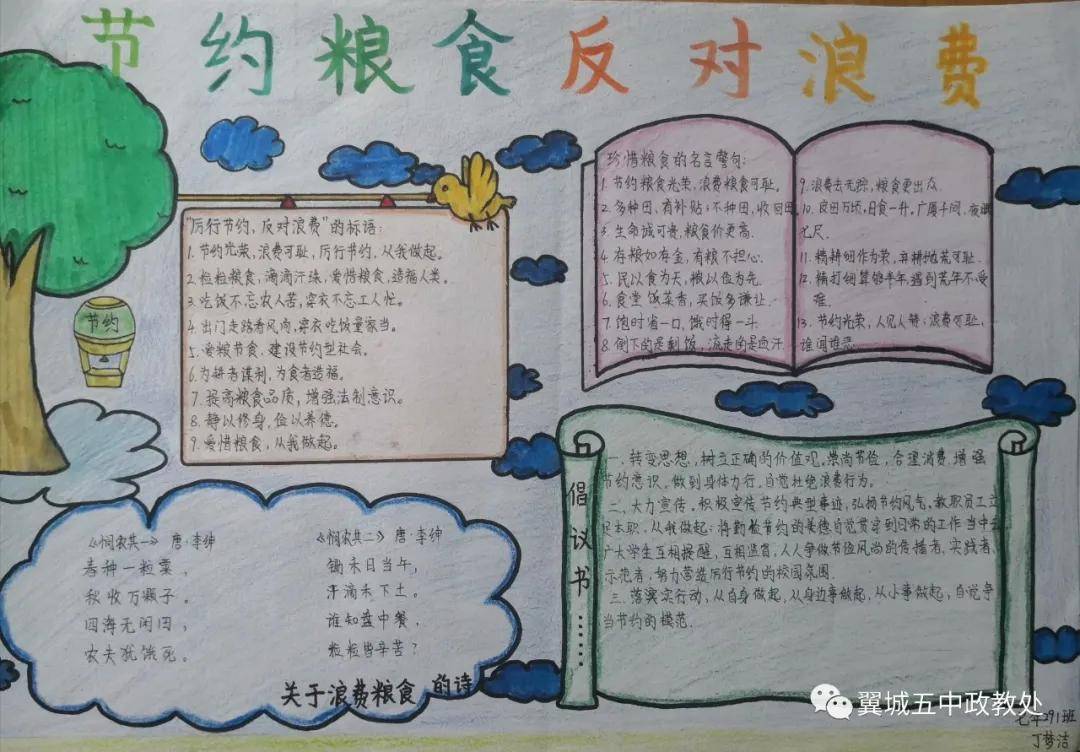 节约粮食反对浪费
节约
"厉行节约,反对浪费"的标语:
1.节约光荣,浪费可耻,厉行节约,从我做起。
2.粒粒粮食,滴滴汗珠,爱惜粮食,造福人类。
3.吃饭不忘农人苦,穿衣不忘工人忙。
4.出门走路看风向,穿衣吃饭量家当。
5.爱粮节食.建设节约型社会。
6.为耕者谋利,为食者造福。
7.提高粮食品质,增强法制意识。
8.静以修身,俭以养德。
9.爱惜粮食,从我做起。
珍惜粮食的名言警句:
1.节约粮食光荣,浪费粮食可耻。
2.多种田、有补贴;不种田,收回田
3.生命诚可贵,粮食价更高.
4.存粮如存金,有粮不担心.
5.民以食为天,粮以俭为先.
6.食堂饭菜香,买饭多谦让.
7.饱时省一口,饿时得一斗.
8.倒下的是剩饭,流走的是血汗.
9.浪费去无踪,粮食更出众.
10.良田万顷,日食一升,广厦千间,夜眠
七尺.
11.精耕细作为荣,弃耕抛荒可耻
12.精打细算够半年,遇到荒年不受
难.
13.节约光荣,人见人赞;浪费可耻,
谁闻谁恐
《悯农其一》唐·李绅
春种一粒粟,
秋收万颗子。
四海无闲田,
农夫犹饿死。
《悯农其二》唐·李绅
锄禾日当午,
汗滴禾下土。
谁知盘中餐,
粒粒皆辛苦?
关于浪费粮食的诗
倡议书……
一.转变思想,树立正确的价值观,崇尚节俭,合理消费,增强
节约意识,做到身体力行,自觉杜绝浪费行为。
二、大力宣传,积极宣传节约典型事迹,弘扬节约风气,教职员工立
足本职,从我做起;将勤俭节约的美德自觉贯穿到日常的工作当中去
广大学生互相提醒,互相监督,人人争做节俭风尚的传播者、实践者、
示范者,努力营造厉行节约的校园氛围.
三.落实实行动,从自身做起,从身边事做起,从小事做起,自觉争
当节约的模范.
翼城五中政教处
七年291班
丁梦洁